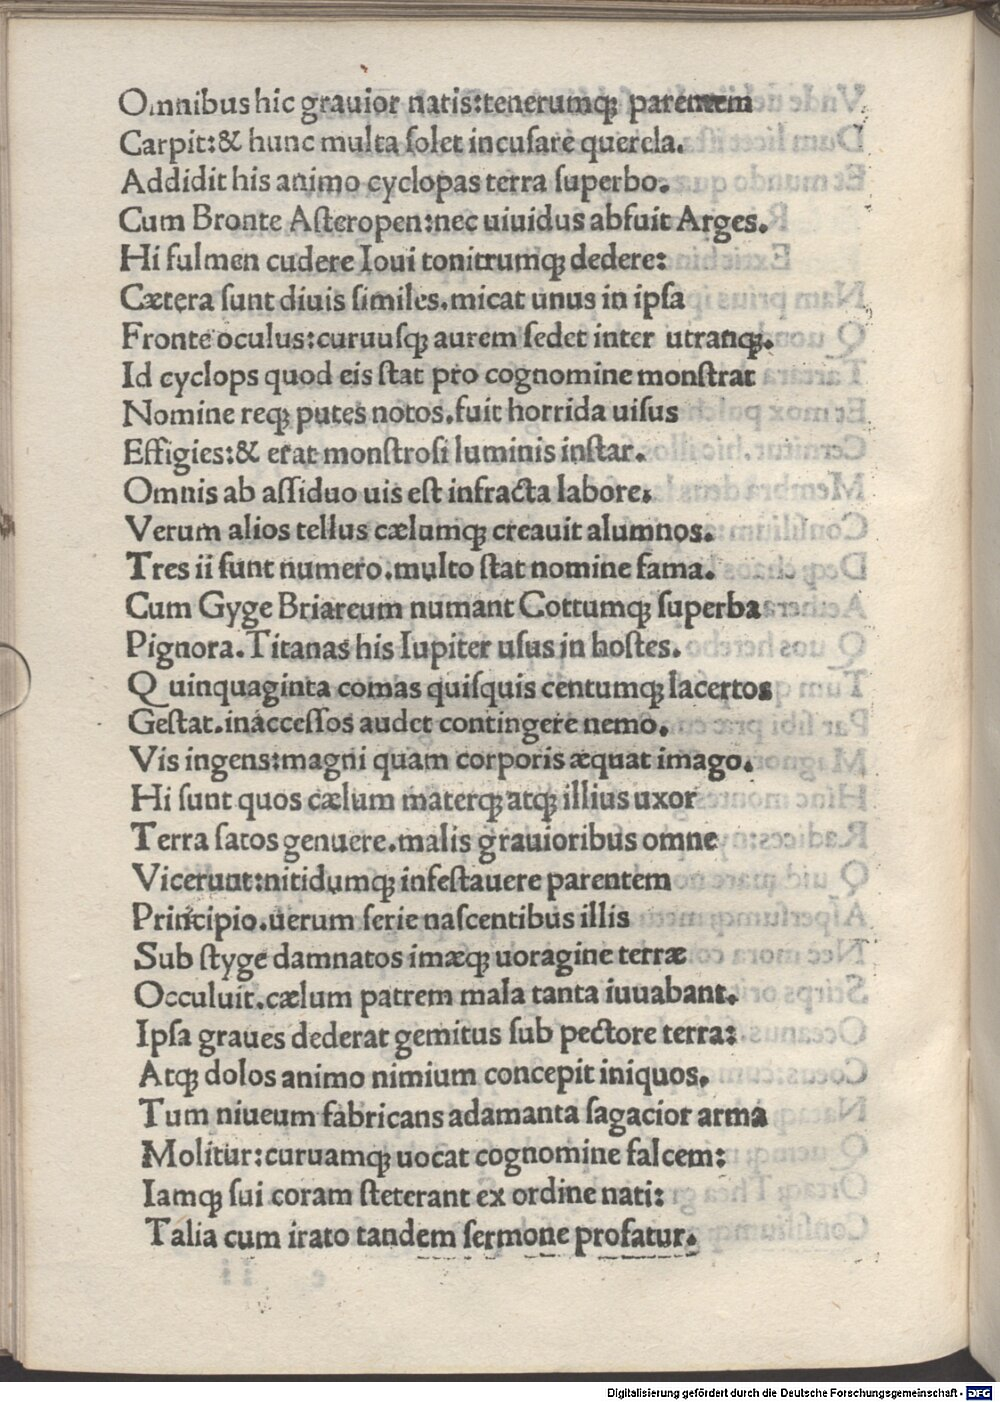 Omnibus hic grauior natis:tenerumqꝫ parentem
Carpit:& hunc multa ſolet incuſare querela.
Addidit his animo cyclopas terra ſuperbo.
Cum Bronte Aſteropen:nec uiuidus abfuit Arges.
Hi fulmen cudere Ioui tonitrumqꝫ dedere:
Cætera ſunt diuis ſimiles.micat unus in ipſa
Fronte oculus:curuuſqꝫ aurem ſedet inter utranqꝫ.
Id cyclops quod eis ſtat pro cognomine monſtrat
Nomine reqꝫ putes notos.fuit horrida uiſus
Effigies:& erat monſtroſi luminis inſtar.
Omnis ab aſſiduo uis eſt infracta labore.
Verum alios tellus cælumqꝫ creauit alumnos.
Tres ii ſunt numero.multo ſtat nomine fama.
Cum Gyge Briareum numant Cottumqꝫ ſuperba
Pignora.Titanas his Iupiter uſus in hoſtes.
Quinquaginta comas quiſquis centumqꝫ lacertos
Geſtat.inacceſſos audet contingere nemo.
Vis ingens:magni quam corporis æquat imago.
Hi ſunt quos cælum materqꝫ atqꝫ illius uxor
Terra ſatos genuere.malis grauioribus omne
Vicerunt:nitidumqꝫ infeſtauere parentem
Principio.uerum ſerie naſcentibus illis
Sub ſtyge damnatos imæqꝫ uoragine terræ
Occuluit.cælum patrem mala tanta iuuabant.
Ipſa graues dederat gemitus ſub pectore terra:
Atqꝫ dolos animo nimium concepit iniquos.
Tum niueum fabricans adamanta ſagacior arma
Molitur:curuamqꝫ uocat cognomine falcem:
Iamqꝫ ſui coram ſteterant ex ordine nati:
Talia cum irato tandem ſermone profatur.
Digitalisierung gefördert durch die Deutsche Forschungsgemeinschaft - DFG